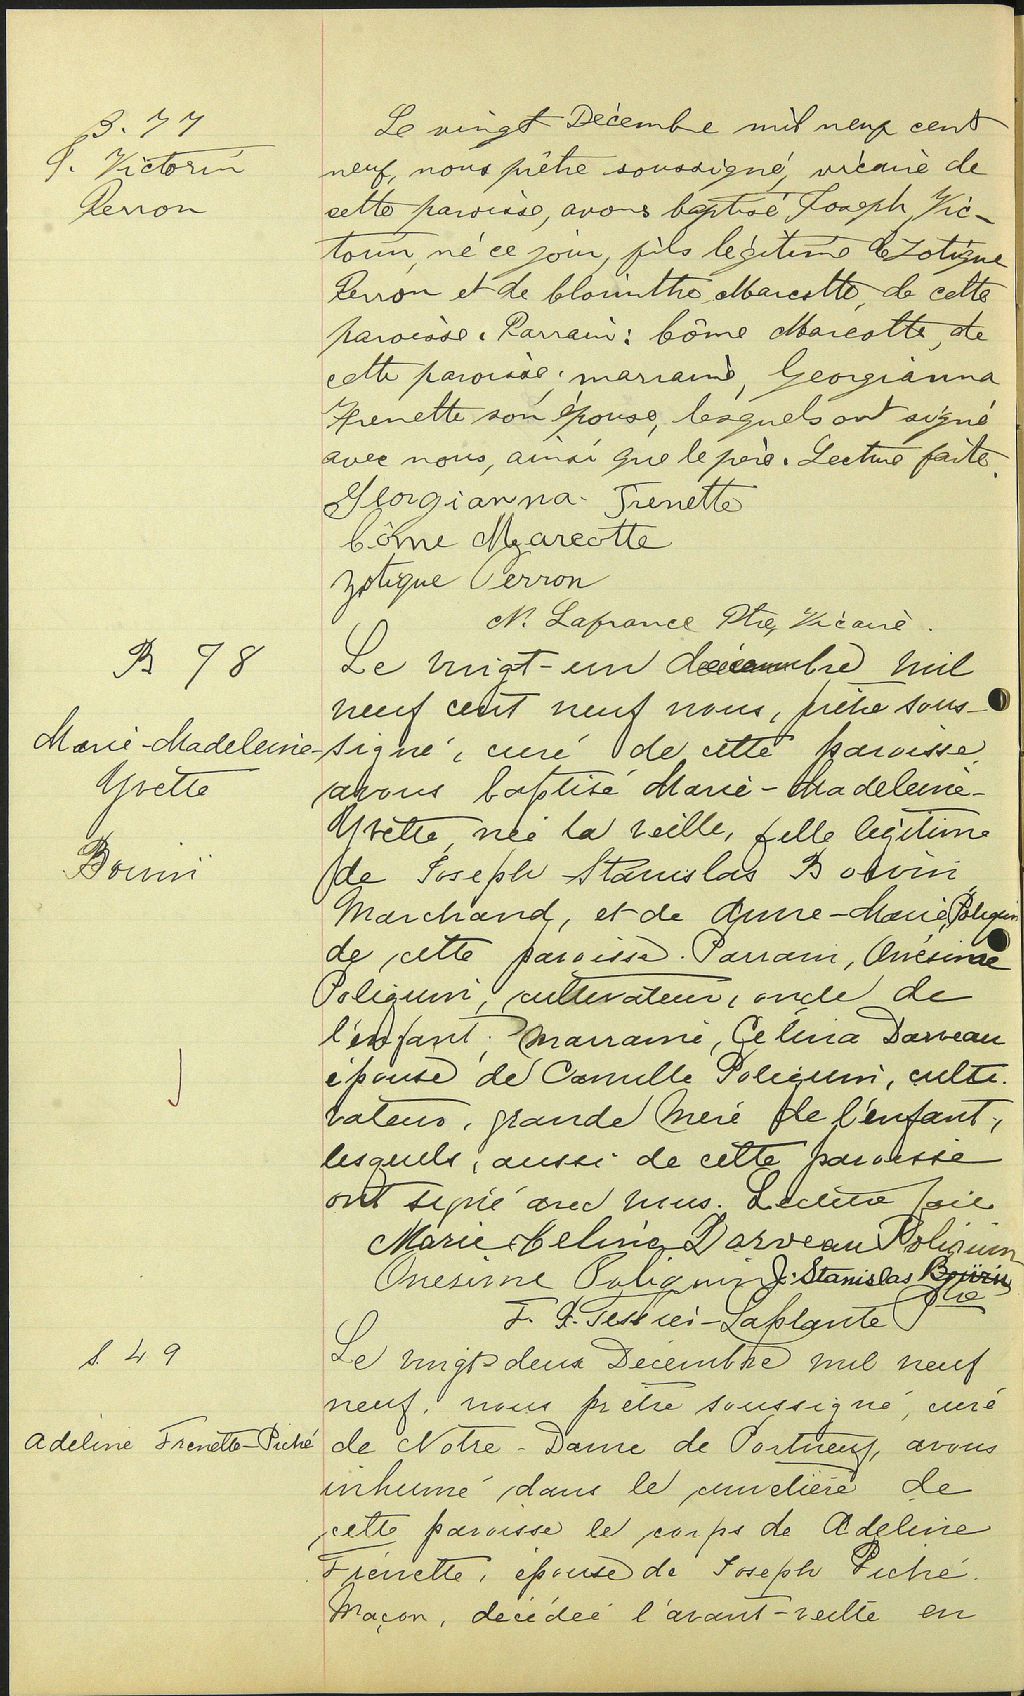 B. 77
J. Victorin
Perron
Le vingt Décembre mil neuf cent
neuf, nous prêtre soussigné, vicaire de
cette paroisse, avons baptisé Joseph, Vic-
torin, né ce jour, fils légitime de Zotique
Perron et de Clorinthe Marcotte, de cette
paroisse. Parrain: Côme Marcotte, de
cette paroisse; marraine, Georgianna
Frenette son épouse, lesquels ont signé
avec nous, ainsi que le père. Lecture faite.
Georgianna Frenette
Côme Marcotte
Zotique Perron
N. Lafrance Ptre, Vicaire.
B 78
Marie-Madeleine-
Yvette
Boivin
Le vingt-un décembre mil
neuf cent neuf nous, prêtre sous-
signé, curé de cette paroisse
avons baptisé Marie-Madeleine-
Yvette, née la veille, fille légitime
de Joseph Stanislas Boivin
Marchand, et de Anne-Marie Poliquin
de cette paroisse. Parrain, Onésime
Poliquin, cultivateur, oncle de
l'enfant; marraine, Célina Darveau
épouse de Camille Poliquin, culti-
vateur, grande mère de l'enfant,
lesquels, aussi de cette paroisse
ont signé avec nous. Lecture faite
Marie Celina Darveau Poliquin
Onesime Poliquin J. Stanislas Boivin
F. X. Tessier-Laplante Ptre
S. 49
Adeline Frenette-Piché
Le vingt-deux Décembre mil neuf
neuf, nous prêtre soussigné, curé
de Notre-Dame de Portneuf, avons
inhumé dans le cimetière de
cette paroisse le corps de Adeline
Frénette, épouse de Joseph Piché.
Maçon, décédée l'avant-veille en